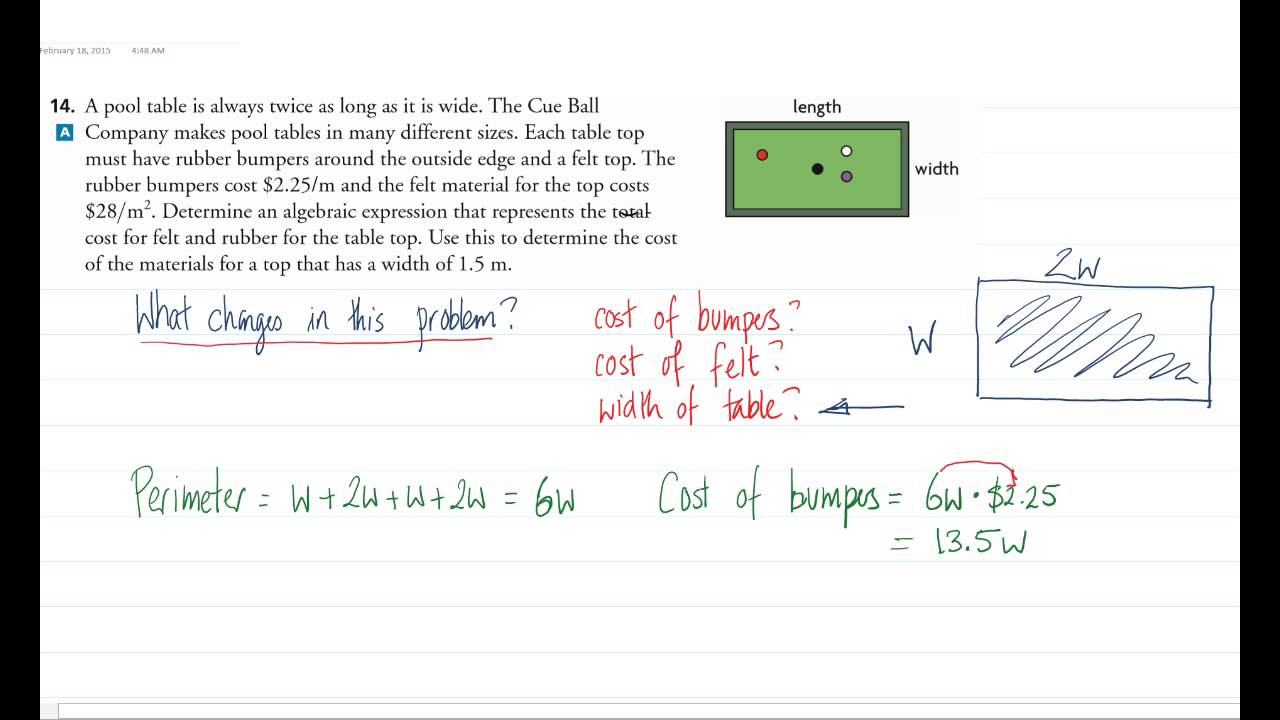 February 18, 2015 4:48 AM
14. A pool table is always twice as long as it is wide. The Cue Ball
A Company makes pool tables in many different sizes. Each table top
must have rubber bumpers around the outside edge and a felt top. The
rubber bumpers cost $2.25/m and the felt material for the top costs
$28/m². Determine an algebraic expression that represents the total
cost for felt and rubber for the table top. Use this to determine the cost
of the materials for a top that has a width of 1.5 m.
length
width
2w
W
What changes in this problem?
cost of bumpers?
cost of felt?
width of table?
Perimeter = w + 2w + w + 2w = 6w
Cost of bumpes = 6w · $2.25
= 13.5w